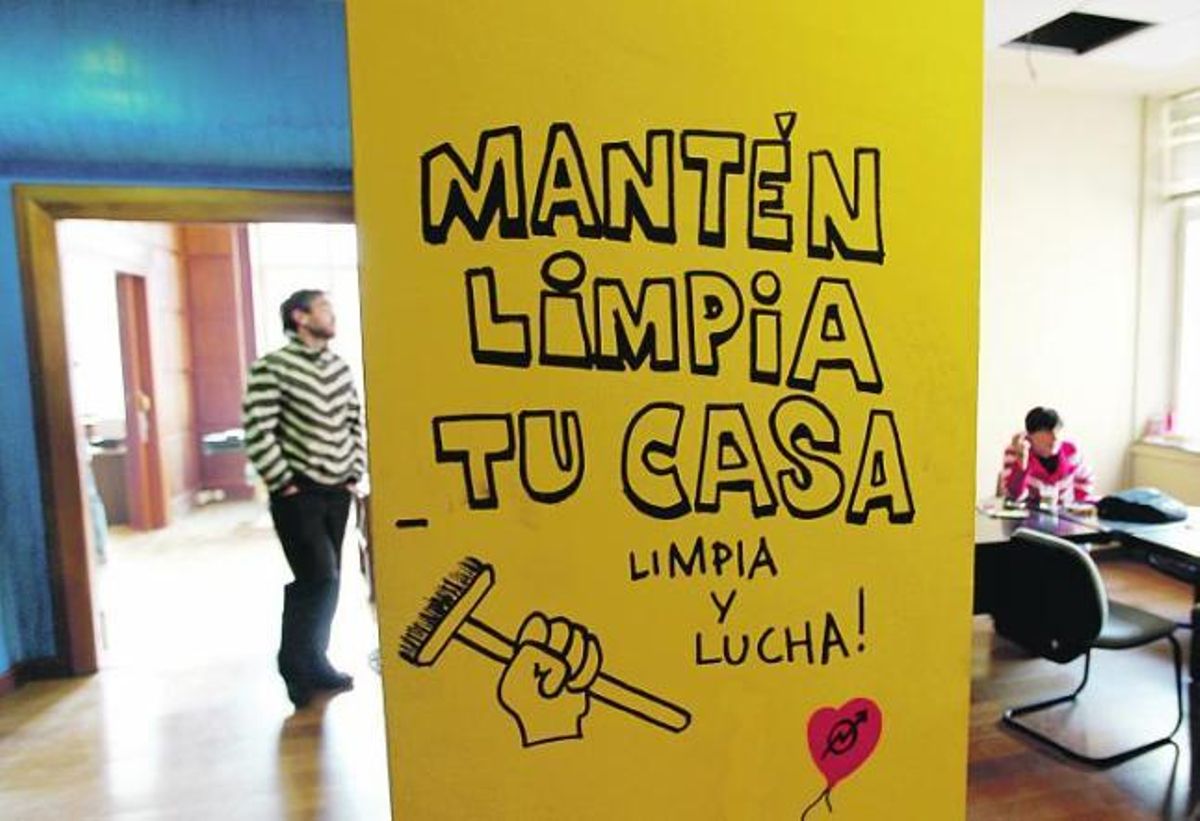 MANTÉN
LiMPiA
TU CASA
LIMPIA
Y
LUCHA!